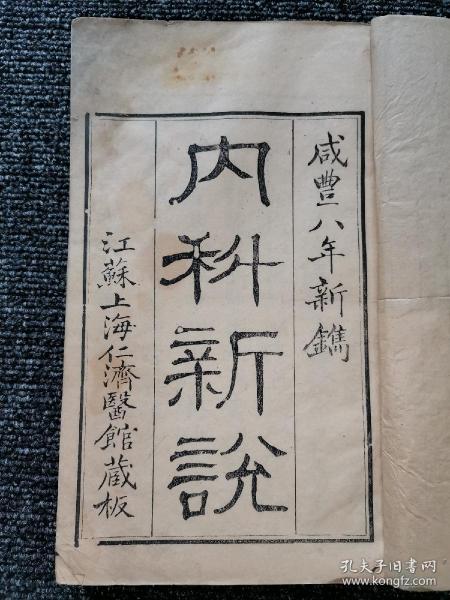 咸豐八年新鐫
内科新說
江蘇上海仁濟醫館蔵板
孔夫子旧书网
www.kongfz.com